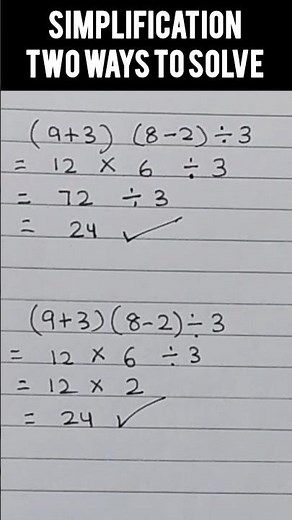 SIMPLIFICATION
TWO WAYS TO SOLVE
(9+3) (8-2) ÷ 3
= 12 × 6 ÷ 3
= 72 ÷ 3
= 24 ✓
(9+3)(8-2) ÷ 3
= 12 × 6 ÷ 3
= 12 × 2
= 24 ✓